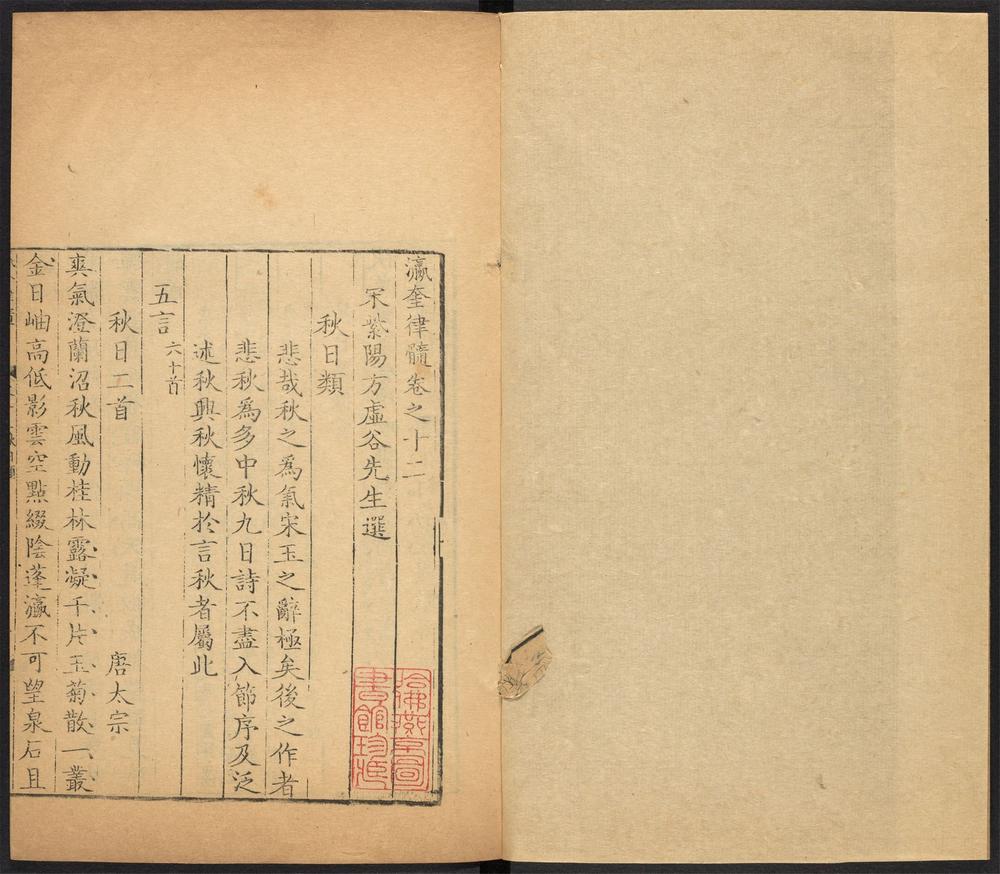 瀛奎律髓卷之十二
宋紫陽方虛谷先生選
秋日類
悲哉秋之為氣宋玉之辭極矣後之作者
悲秋爲多中秋九日詩不盡入節序及泛
述秋興秋懷精於言秋者屬此
五言 六十首
秋日二首 唐太宗
爽氣澄蘭沼秋風動桂林露凝千片玉菊散一叢
金日岫高低影雲空點綴陰蓬瀛不可望泉石且
哈佛燕京圖
書館珍藏